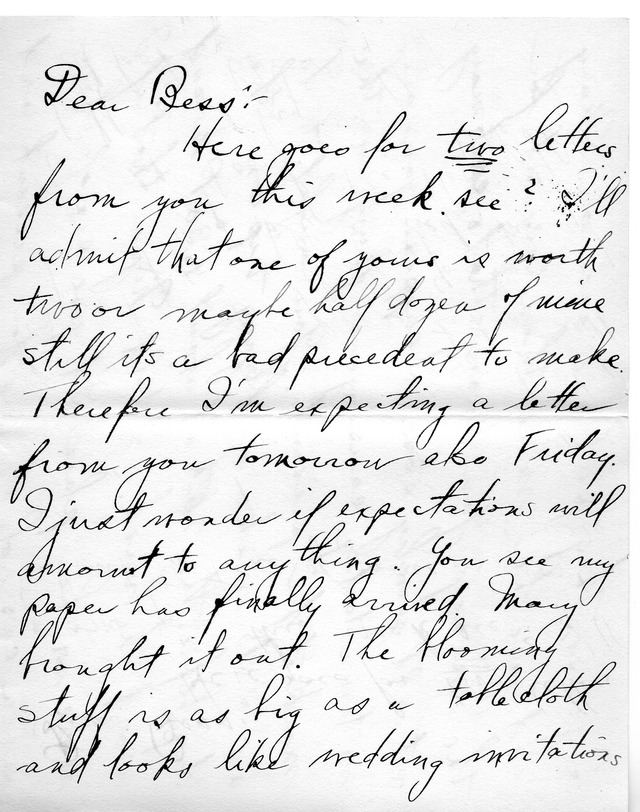 Dear Bess:-
Here goes for two letters
from you this week. see? I'll
admit that one of yours is worth
two or maybe half dozen of mine
still it's a bad precedent to make.
Therefore I'm expecting a letter
from you tomorrow also Friday.
I just wonder if expectations will
amount to anything. You see my
paper has finally arrived. Mary
brought it out. The blooming
stuff is as big as a tablecloth
and looks like wedding invitations